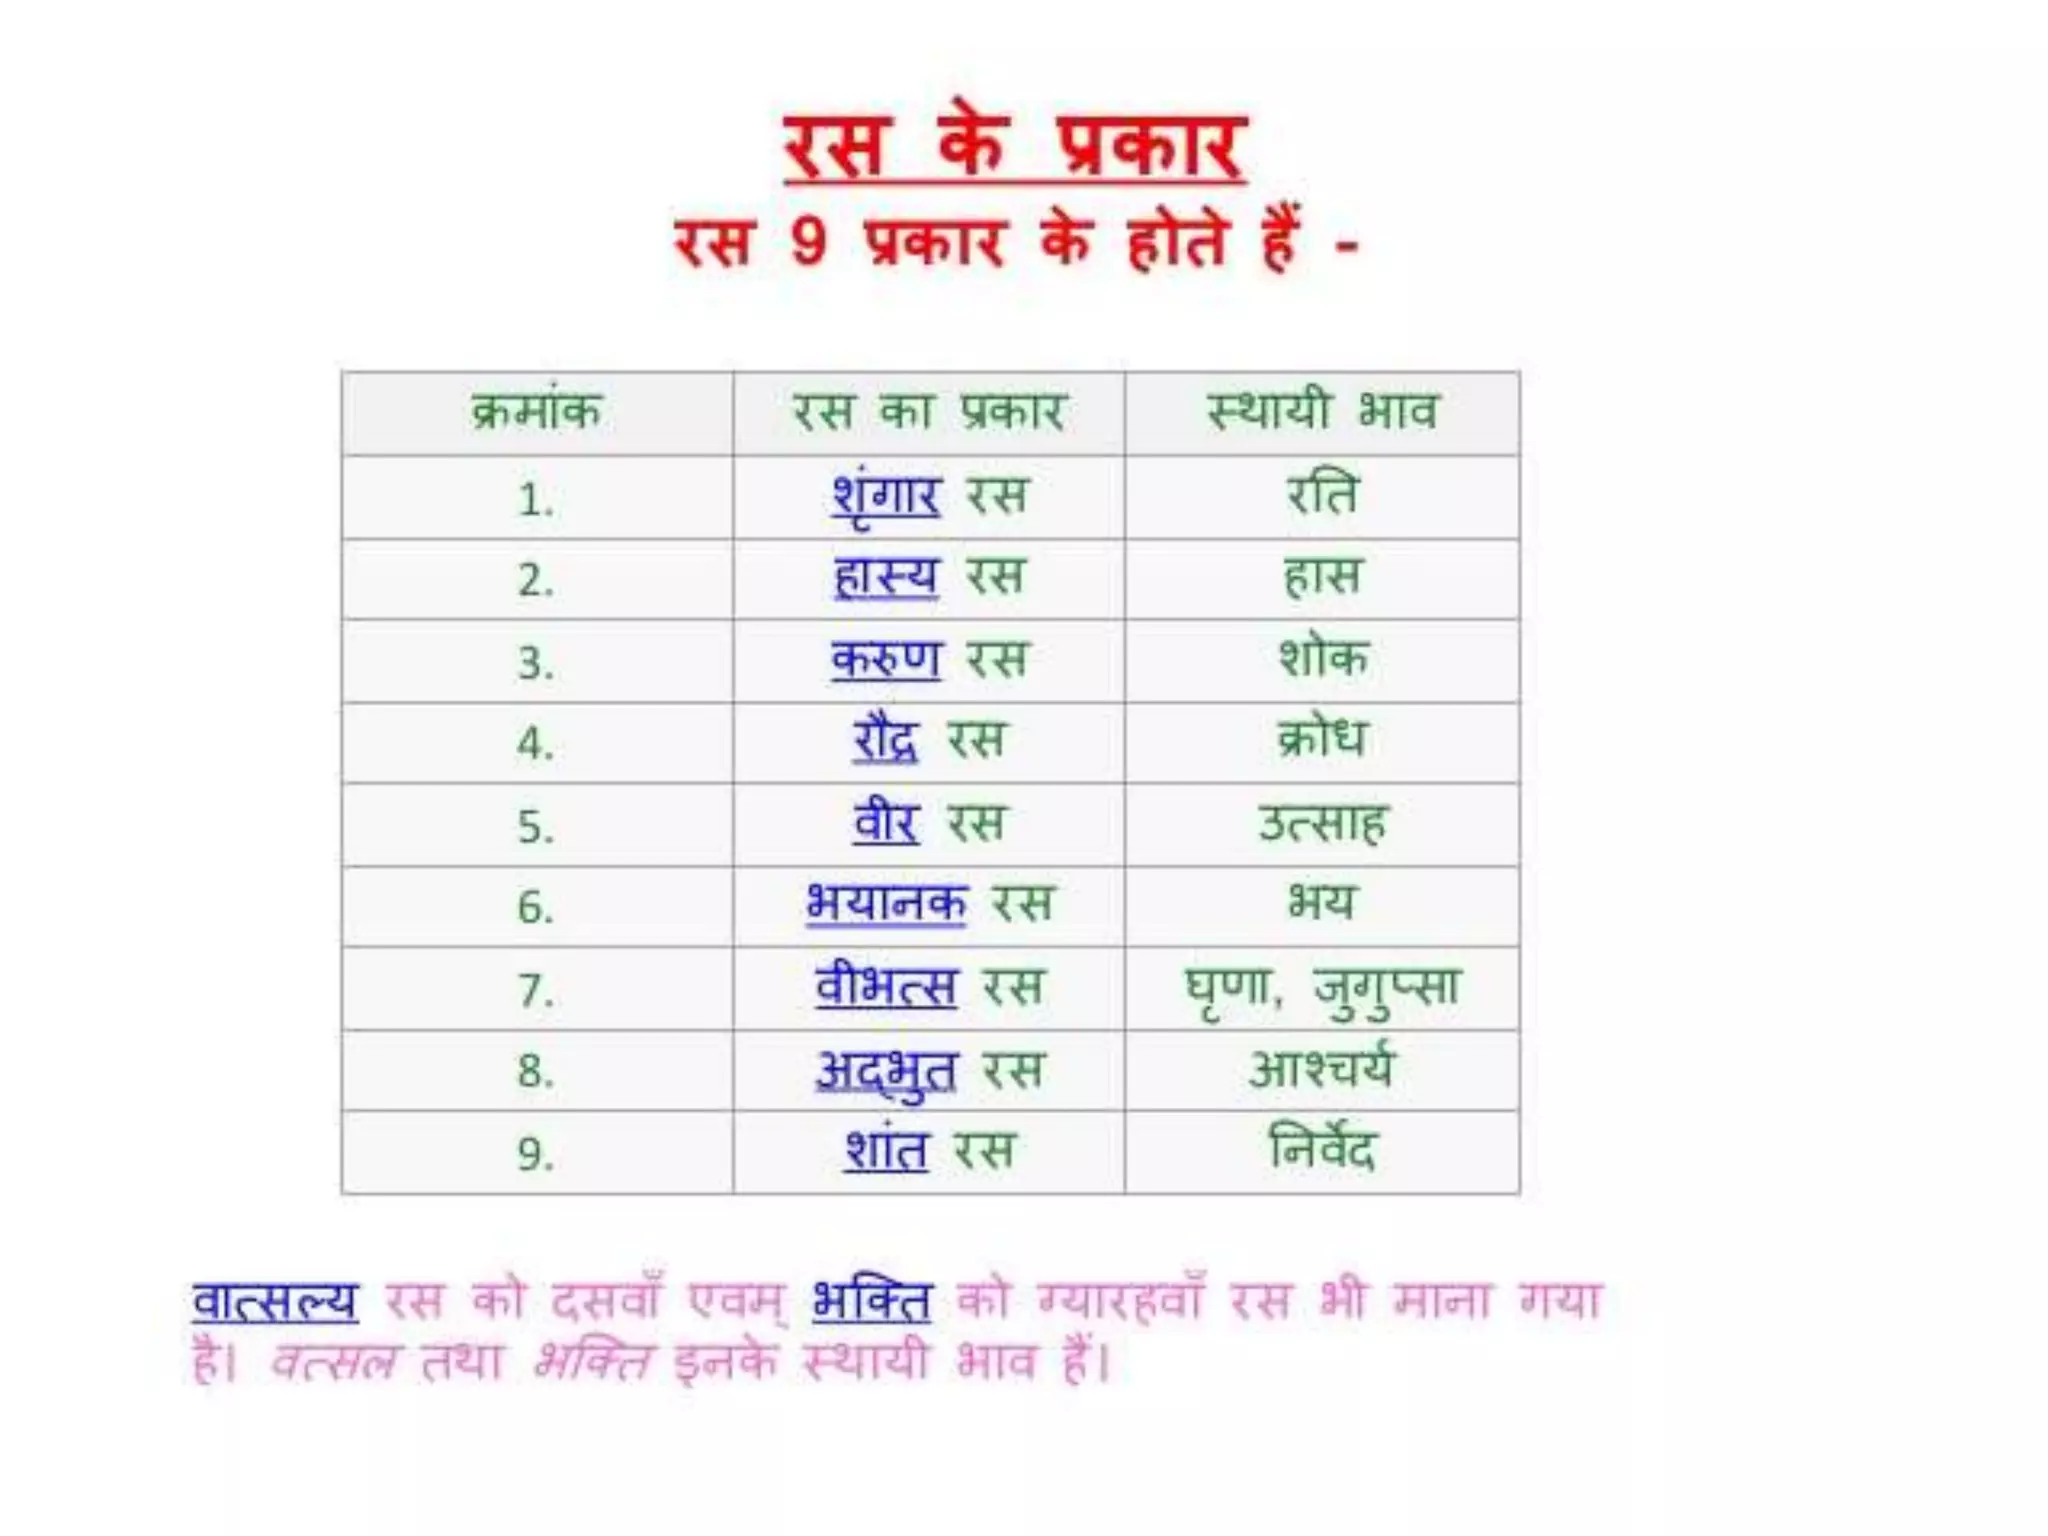 रस के प्रकार
रस 9 प्रकार के होते हैं -
क्रमांक रस का प्रकार स्थायी भाव
1. शृंगार रस रति
2. हास्य रस हास
3. करुण रस शोक
4. रौद्र रस क्रोध
5. वीर रस उत्साह
6. भयानक रस भय
7. वीभत्स रस घृणा, जुगुप्सा
8. अद्भुत रस आश्चर्य
9. शांत रस निर्वेद
वात्सल्य रस को दसवाँ एवम् भक्ति को ग्यारहवाँ रस भी माना गया
है। वत्सल तथा भक्ति इनके स्थायी भाव हैं।